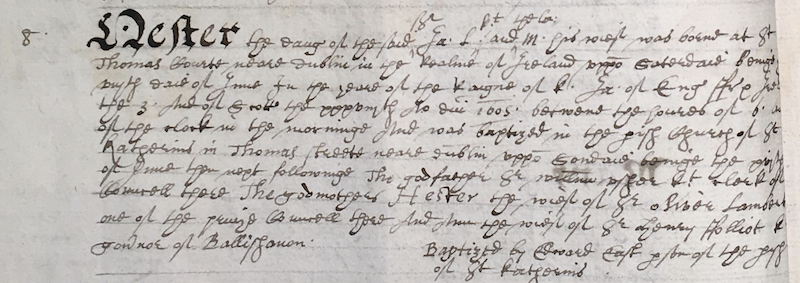 8. Hester the daug of the said Sr Ja: L: kt &
M. his wief was borne at St
Thomas Courte neare dublin in the Realme of Ireland uppō Saterdaie beinge
daie of June In the yeare of the Raigne of K. Ja: of Eng ffr &
the 3. And of Scotł the Ao dni 1605. betwene the houres of 6.
of the clock in the morninge And was baptized in the pish Church of St
Katherins in Thomas streete neare dublin uppō Sondaie beinge the
of June then next followinge The godfather Sr kt clerk of
Councell there The godmothers Hester the wief of Sr Oliver Lambert
one of the privye Councell there And Ann the wief of Sr Henry ffolliot K
gov'nor of Ballishanon:
Baptized by Edward East pson of the pish
of St Katherins